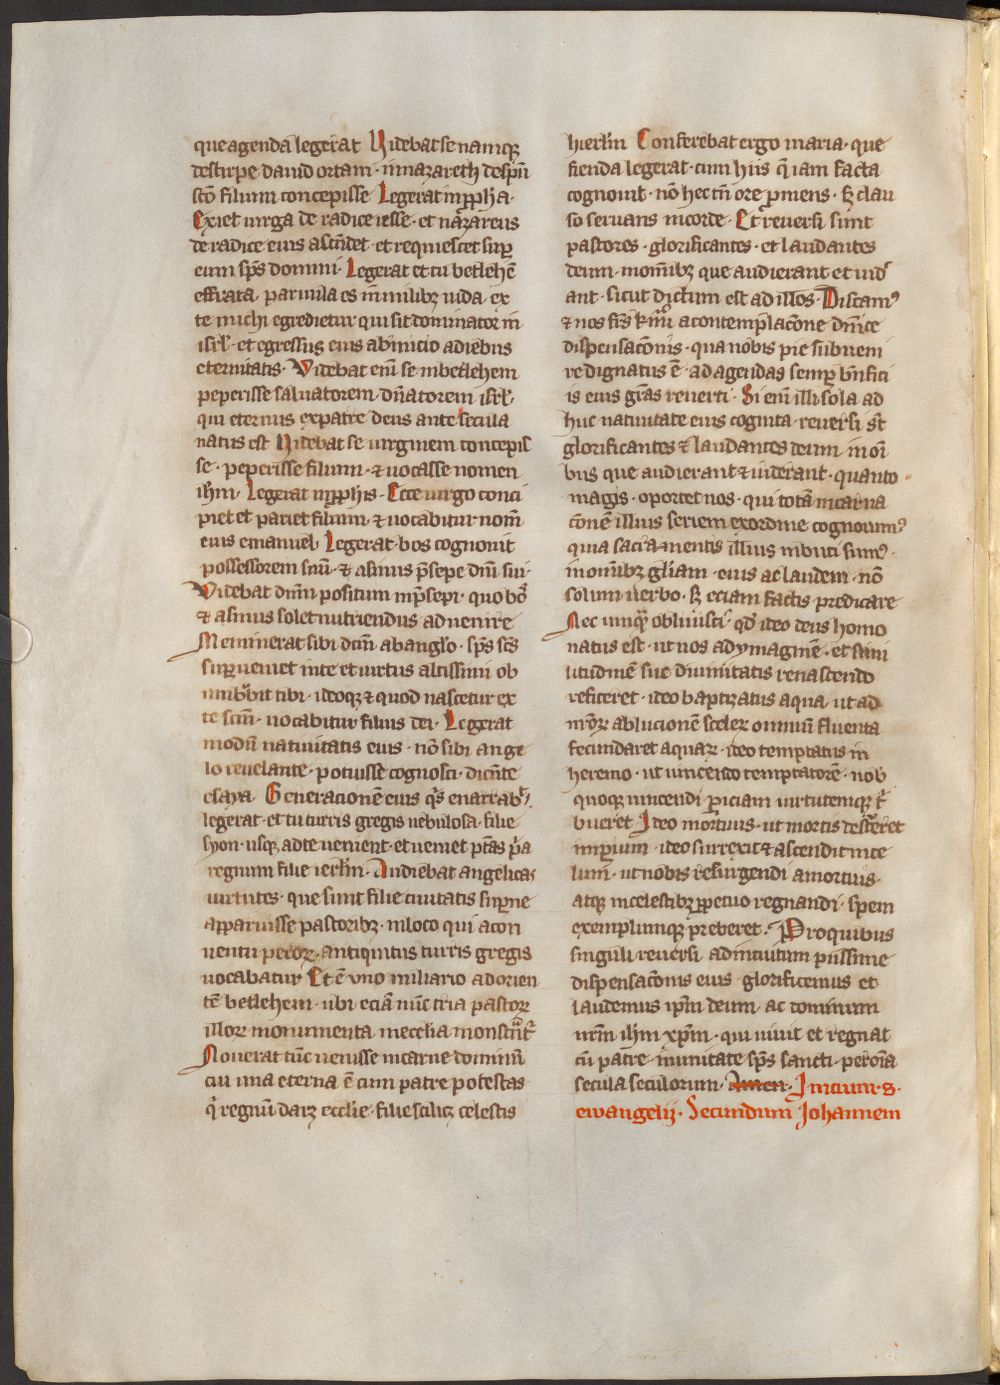 que agenda legerat Videbat se namqꝫ
de stirpe dauid ortam · in nazareth de spū
scō filium concepisse Legerat in ꝓph̄a ·
Exiet uirga de radice iesse · et nazareus
de radice eius ascēdet · et requiescet suꝑ
eum sp̄s domini · Legerat et tu betlehē
effrata · paruula es in milibꝫ iuda · ex
te michi egredietur qui sit dominator in
isrl̄ · et egressus eius ab inicio a diebus
eternitatis · Videbat em̄ se in betlehem
peperisse saluatorem · dn̄atorem isrl̄ ·
qui eternus ex patre deus ante secula
natus est Videbat se uirginem concepis
se · peperisse filium · ⁊ uocasse nomen
ih̄m · Legerat in ꝓph̄is · Ecce uirgo conci
piet et pariet filium · ⁊ uocabitur nom̄
eius emanuel · Legerat · bos cognouit
possessorem suū · ⁊ asinus p̄sepe dn̄i sui ·
Videbat dn̄m positum in p̄sepi · quo bos
⁊ asinus solet nutriendus aduenire
Meminerat sibi dictū ab anglo · sp̄s scs̄
suꝑueniet in te et uirtus altissimi ob
umbͣbit tibi · ideoqꝫ ⁊ quod nascetur ex
te scm̄ · uocabitur filius dei · Legerat
modū natiuitatis eius · nō sibi ange
lo reuelante · potuisse cognosci · dicēte
esaya · Generacionē eius qͥs enarrabͭ ·
legerat · et tu turris gregis nebulosa · filie
syon · usqꝫ ad te uenient · et ueniet ptās pͥa
regnum filie ierl̄m · Audiebat angelicas
uirtutes · que sunt filie ciuitatis suꝑne
apparuisse pastoribꝫ · in loco qui a con
uentu pecoꝝ · antiquitus turris gregis
uocabatur Et ē uno miliario ad orien
tē betlehem · ubi eciā nūc tria pastoꝝ
illoꝝ monumenta in ecclia monstrāt̄
Nouerat tūc uenisse in carne dominū
cui una eterna ē cum patre potestas
qͥ regnū daꝫ ecclie · filie scilicꝫ celestis
hierl̄m Conferebat ergo maria · que
fienda legerat · cum hiis q̄ iam facta
cognouit · nō hec tn̄ ore ꝓmens · sꝫ clau
so seruans in corde · Et reuersi sunt
pastores · glorificantes · et laudantes
deum · in om̄ibꝫ que audierant et uidͬ
ant · sicut dictum est ad illos · Discamꝰ
⁊ nos frs̄ kr̄mi a contemplacōne dn̄ice
dispensacōnis · qua nobis pie subueni
re dignatus ē · ad agendas semꝑ bn̄fici
is eius gr̄as reuerti · Si em̄ illi sola ad
huc natiuitate eius cognita · reuersi st̄
glorificantes ⁊ laudantes deum in om̄i
bus que audierant ⁊ uiderant · quanto
magis · oportet nos · qui totā incarna
cōnē illius seriem ex ordine cognouimꝰ
quia sacramentis illius inbuti sumꝰ ·
in om̄ibꝫ gl̄iam · eius ac laudem · nō
solum uerbo · sꝫ eciam factis predicare
Nec umqͣ obliuisci · qd̄ ideo deus homo
natus est · ut nos ad ymaginē · et simi
litudinē sue diuinitatis renascendo
reficeret · ideo baptizatus aqua · ut ad
nr̄oꝝ ablucionē sceleꝝ omniū fluenta
fecundaret aquaꝝ · ideo temptatus in
heremo · ut uincendo temptatorē · nob̄
quoqꝫ uincendi ꝑiciam uirtutemqꝫ tͥ
bueret Ideo mortuus · ut mortis destͬeret
imꝑium · ideo surrexit ⁊ ascendit in ce
lum · ut nobis resurgendi a mortuis ·
atqꝫ in celestibꝫ ꝑpetuo regnandi · spem
exemplumqꝫ preberet · Pro quibus
singuli reuersi ad intuitum piissime
dispensacōnis eius · glorificemus et
laudemus ip̄m deum · ac dominum
nr̄m ih̄m xp̄m · qui uiuit et regnat
cū patre · in unitate sp̄s sancti · per om̄ia
secula seculorum · Amen · Inicium · s ·
ewangelij · Secundum Johannem